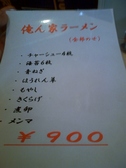 俺ん家ラーメン
(全部のせ)
・チャーシュー4枚
・海苔6枚
・青ねぎ
・ほうれん草
・もやし
・きくらげ
・煮卵
・メンマ
¥900